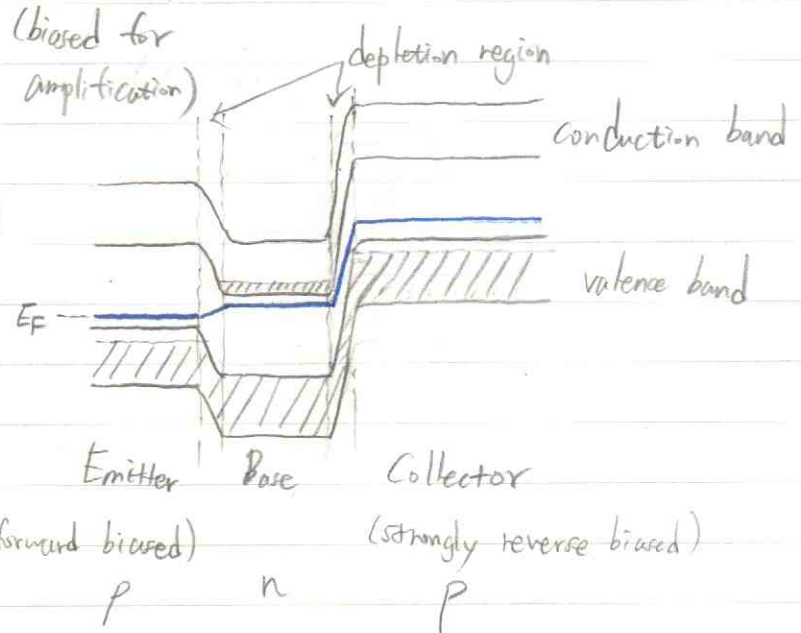 (biased for
amplification)
depletion region
conduction band
valence band
EF
Emitter Base Collector
forward biased) (strongly reverse biased)
p n p